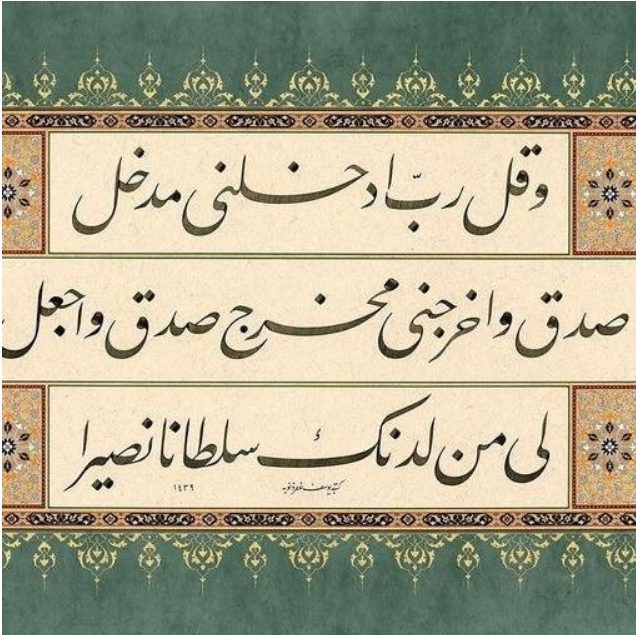 وقل ربّ ادخلنى مدخل
صدق واخرجنى مخرج صدق واجعل
لى من لدنك سلطانا نصيرا
كتبه يوسف غفر ذنوبه
١٤٣٩